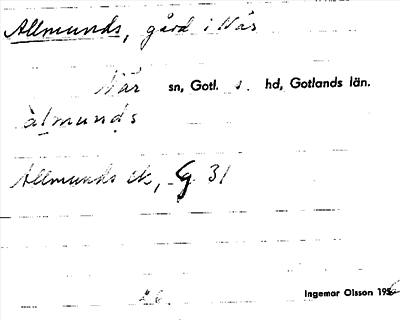 Allmunds, gård i När
När sn, Gotl. s. hd, Gotlands län.
almunds
Allmunds ek, G 31
Ingemar Olsson 1956